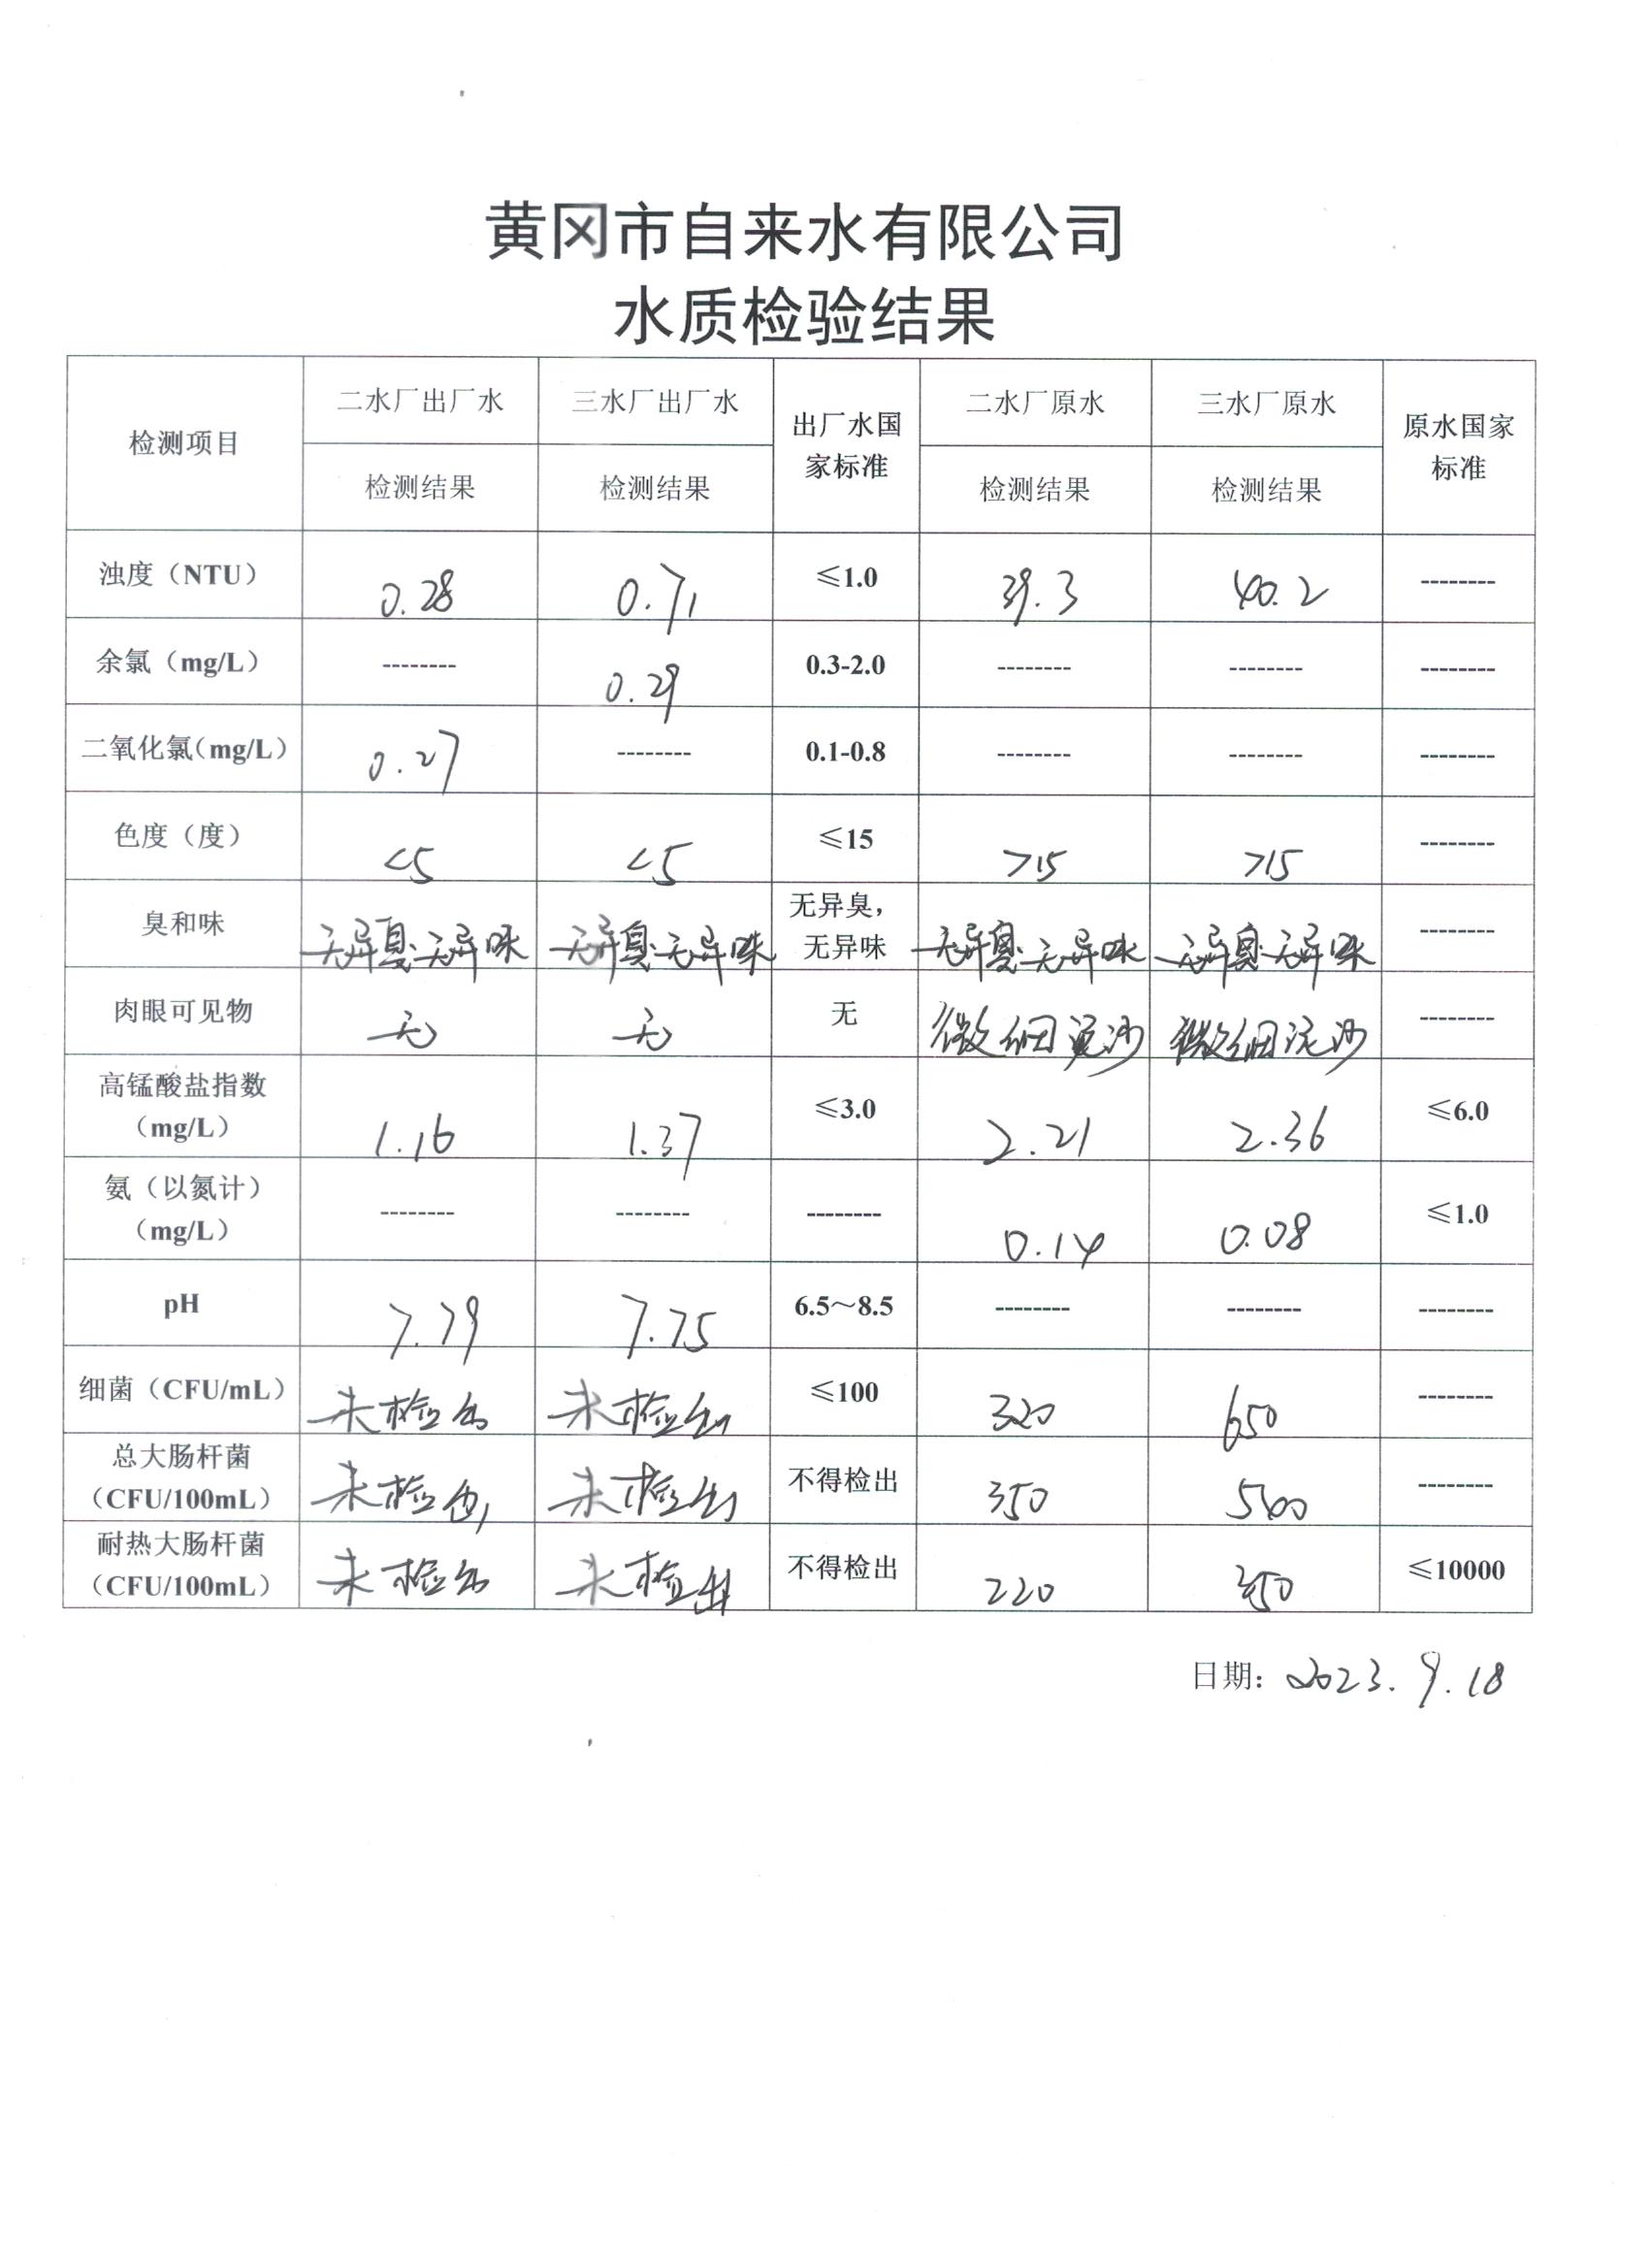 黄冈市自来水有限公司
水质检验结果
检测项目 二水厂出厂水 三水厂出厂水 出厂水国家标准 二水厂原水 三水厂原水 原水国家标准
检测结果 检测结果 检测结果 检测结果
浊度（NTU） 0.28 0.71 ≤1.0 39.3 40.2 --------
余氯（mg/L） -------- 0.29 0.3-2.0 -------- -------- --------
二氧化氯（mg/L） 0.27 -------- 0.1-0.8 -------- -------- --------
色度（度） <5 <5 ≤15 >15 >15 --------
臭和味 无异臭.无异味 无异臭.无异味 无异臭，无异味 无异臭.无异味 无异臭.无异味 --------
肉眼可见物 无 无 无 微细泥沙 微细泥沙 --------
高锰酸盐指数（mg/L） 1.16 1.37 ≤3.0 2.21 2.36 ≤6.0
氨（以氮计）（mg/L） -------- -------- -------- 0.14 0.08 ≤1.0
pH 7.79 7.75 6.5～8.5 -------- -------- --------
细菌（CFU/mL） 未检出 未检出 ≤100 320 650 --------
总大肠杆菌（CFU/100mL） 未检出 未检出 不得检出 350 500 --------
耐热大肠杆菌（CFU/100mL） 未检出 未检出 不得检出 220 350 ≤10000
日期：2023.9.18